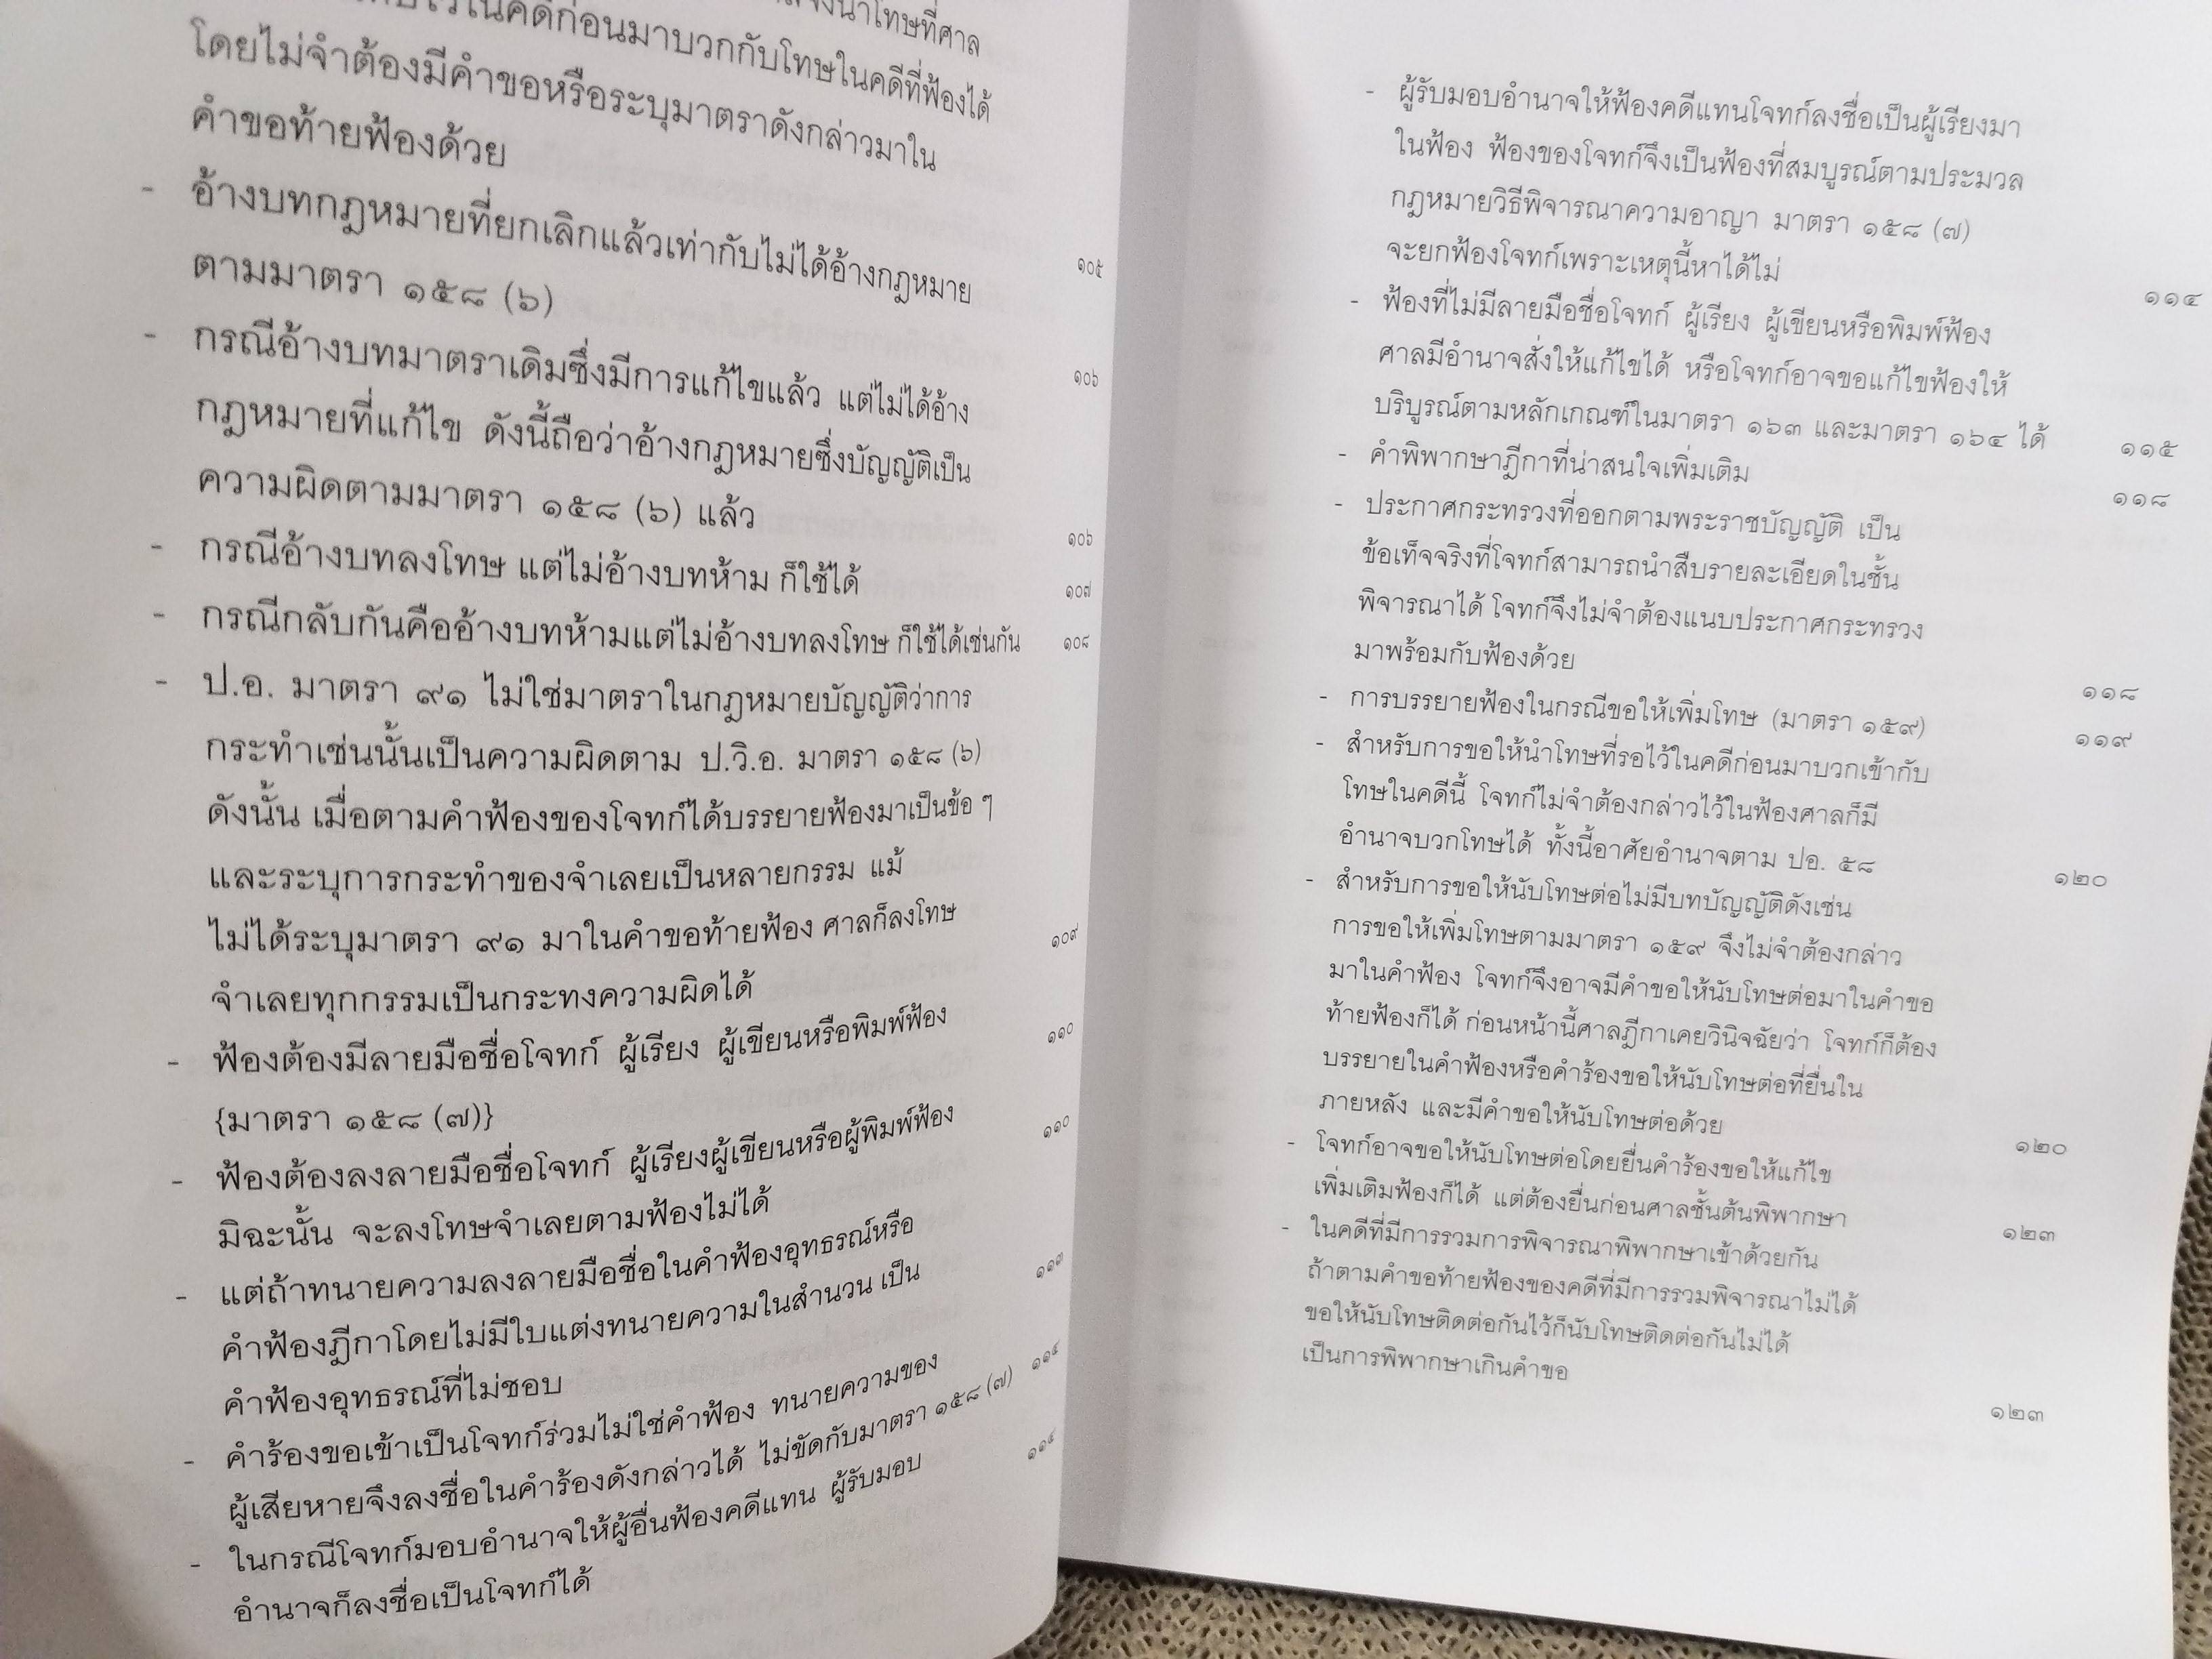 นำโทษที่ศาล
ไว้ในคดีก่อนมาบวกกับโทษในคดีที่ฟ้องได้
โดยไม่จำต้องมีคำขอหรือระบุมาตราดังกล่าวมาใน
คำขอท้ายฟ้องด้วย ๑๐๕
- อ้างบทกฎหมายที่ยกเลิกแล้วเท่ากับไม่ได้อ้างกฎหมาย
ตามมาตรา ๑๕๘ (๖) ๑๐๖
- กรณีอ้างบทมาตราเดิมซึ่งมีการแก้ไขแล้ว แต่ไม่ได้อ้าง
กฎหมายที่แก้ไข ดังนี้ถือว่าอ้างกฎหมายซึ่งบัญญัติเป็น
ความผิดตามมาตรา ๑๕๘ (๖) แล้ว ๑๐๖
- กรณีอ้างบทลงโทษ แต่ไม่อ้างบทห้าม ก็ใช้ได้ ๑๐๗
- กรณีกลับกันคืออ้างบทห้ามแต่ไม่อ้างบทลงโทษ ก็ใช้ได้เช่นกัน ๑๐๘
- ป.อ. มาตรา ๙๑ ไม่ใช่มาตราในกฎหมายบัญญัติว่าการ
กระทำเช่นนั้นเป็นความผิดตาม ป.วิ.อ. มาตรา ๑๕๘ (๖)
ดังนั้น เมื่อตามคำฟ้องของโจทก์ได้บรรยายฟ้องมาเป็นข้อ ๆ
และระบุการกระทำของจำเลยเป็นหลายกรรม แม้
ไม่ได้ระบุมาตรา ๙๑ มาในคำขอท้ายฟ้อง ศาลก็ลงโทษ
จำเลยทุกกรรมเป็นกระทงความผิดได้ ๑๐๙
- ฟ้องต้องมีลายมือชื่อโจทก์ ผู้เรียง ผู้เขียนหรือพิมพ์ฟ้อง
{มาตรา ๑๕๘ (๗)} ๑๑๐
- ฟ้องต้องลงลายมือชื่อโจทก์ ผู้เรียงผู้เขียนหรือผู้พิมพ์ฟ้อง
มิฉะนั้น จะลงโทษจำเลยตามฟ้องไม่ได้ ๑๑๐
- แต่ถ้าทนายความลงลายมือชื่อในคำฟ้องอุทธรณ์หรือ
คำฟ้องฎีกาโดยไม่มีใบแต่งทนายความในสำนวน เป็น
คำฟ้องอุทธรณ์ที่ไม่ชอบ ๑๑๓
- คำร้องขอเข้าเป็นโจทก์ร่วมไม่ใช่คำฟ้อง ทนายความของ
ผู้เสียหายจึงลงชื่อในคำร้องดังกล่าวได้ ไม่ขัดกับมาตรา ๑๕๘ (๗) ๑๑๔
- ในกรณีโจทก์มอบอำนาจให้ผู้อื่นฟ้องคดีแทน ผู้รับมอบ
อำนาจก็ลงชื่อเป็นโจทก์ได้ ๑๑๔
- ผู้รับมอบอำนาจให้ฟ้องคดีแทนโจทก์ลงชื่อเป็นผู้เรียงมา
ในฟ้อง ฟ้องของโจทก์จึงเป็นฟ้องที่สมบูรณ์ตามประมวล
กฎหมายวิธีพิจารณาความอาญา มาตรา ๑๕๘ (๗)
จะยกฟ้องโจทก์เพราะเหตุนี้หาได้ไม่ ๑๑๔
- ฟ้องที่ไม่มีลายมือชื่อโจทก์ ผู้เรียง ผู้เขียนหรือพิมพ์ฟ้อง
ศาลมีอำนาจสั่งให้แก้ไขได้ หรือโจทก์อาจขอแก้ไขฟ้องให้
บริบูรณ์ตามหลักเกณฑ์ในมาตรา ๑๖๓ และมาตรา ๑๖๔ ได้ ๑๑๕
- คำพิพากษาฎีกาที่น่าสนใจเพิ่มเติม ๑๑๘
- ประกาศกระทรวงที่ออกตามพระราชบัญญัติ เป็น
ข้อเท็จจริงที่โจทก์สามารถนำสืบรายละเอียดในชั้น
พิจารณาได้ โจทก์จึงไม่จำต้องแนบประกาศกระทรวง
มาพร้อมกับฟ้องด้วย ๑๑๘
- การบรรยายฟ้องในกรณีขอให้เพิ่มโทษ (มาตรา ๑๕๙) ๑๑๙
- สำหรับการขอให้นำโทษที่รอไว้ในคดีก่อนมาบวกเข้ากับ
โทษในคดีนี้ โจทก์ไม่จำต้องกล่าวไว้ในฟ้องศาลก็มี
อำนาจบวกโทษได้ ทั้งนี้อาศัยอำนาจตาม ปอ. ๕๘ ๑๒๐
- สำหรับการขอให้นับโทษต่อไม่มีบทบัญญัติดังเช่น
การขอให้เพิ่มโทษตามมาตรา ๑๕๙ จึงไม่จำต้องกล่าว
มาในคำฟ้อง โจทก์จึงอาจมีคำขอให้นับโทษต่อมาในคำขอ
ท้ายฟ้องก็ได้ ก่อนหน้านี้ศาลฎีกาเคยวินิจฉัยว่า โจทก์ก็ต้อง
บรรยายในคำฟ้องหรือคำร้องขอให้นับโทษต่อที่ยื่นใน
ภายหลัง และมีคำขอให้นับโทษต่อด้วย ๑๒๐
- โจทก์อาจขอให้นับโทษต่อโดยยื่นคำร้องขอให้แก้ไข
เพิ่มเติมฟ้องก็ได้ แต่ต้องยื่นก่อนศาลชั้นต้นพิพากษา ๑๒๓
- ในคดีที่มีการรวมการพิจารณาพิพากษาเข้าด้วยกัน
ถ้าตามคำขอท้ายฟ้องของคดีที่มีการรวมพิจารณาไม่ได้
ขอให้นับโทษติดต่อกันไว้ก็นับโทษติดต่อกันไม่ได้
เป็นการพิพากษาเกินคำขอ ๑๒๓